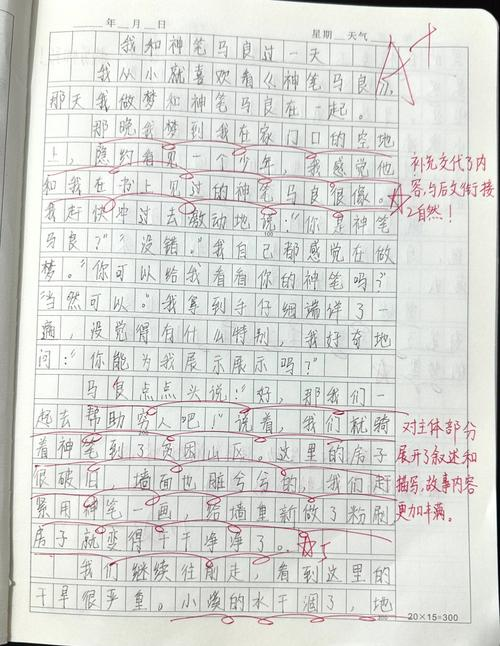 年 月 日
星期 天气
我和神笔马良过一天
我从小就喜欢看《神笔马良》,
那天我做梦和神笔马良在一起。
那晚我梦到我在家门口的空地
上,隐约看见一个少年,我感觉他
和我在书上见过的神笔马良很像。
我赶快冲过去激动地说:“你是神笔
马良?”“没错。”我自己都感觉在做
梦。“你可以给我看看你的神笔吗?”
“当然可以。”我拿到手仔细端详了一
遍,没觉得有什么特别,我好奇地
问:“你能为我展示展示吗?”
马良点点头说:“好,那我们一
起去帮助穷人吧!”说着,我们就骑
着神笔到了贫困山区。这里的房子
很破旧,墙面也脏兮兮的,我们赶
紧用神笔一画,给墙重新做了粉刷
房子就变得干干净净了。
我们继续往前走,看到这里的
干旱很严重。小溪的水干涸了,地
A+
补充交代了内
容,与后文衔接
自然!
对主体部分
展开了叙述和
描写,故事内容
更加丰满。
20×15=300